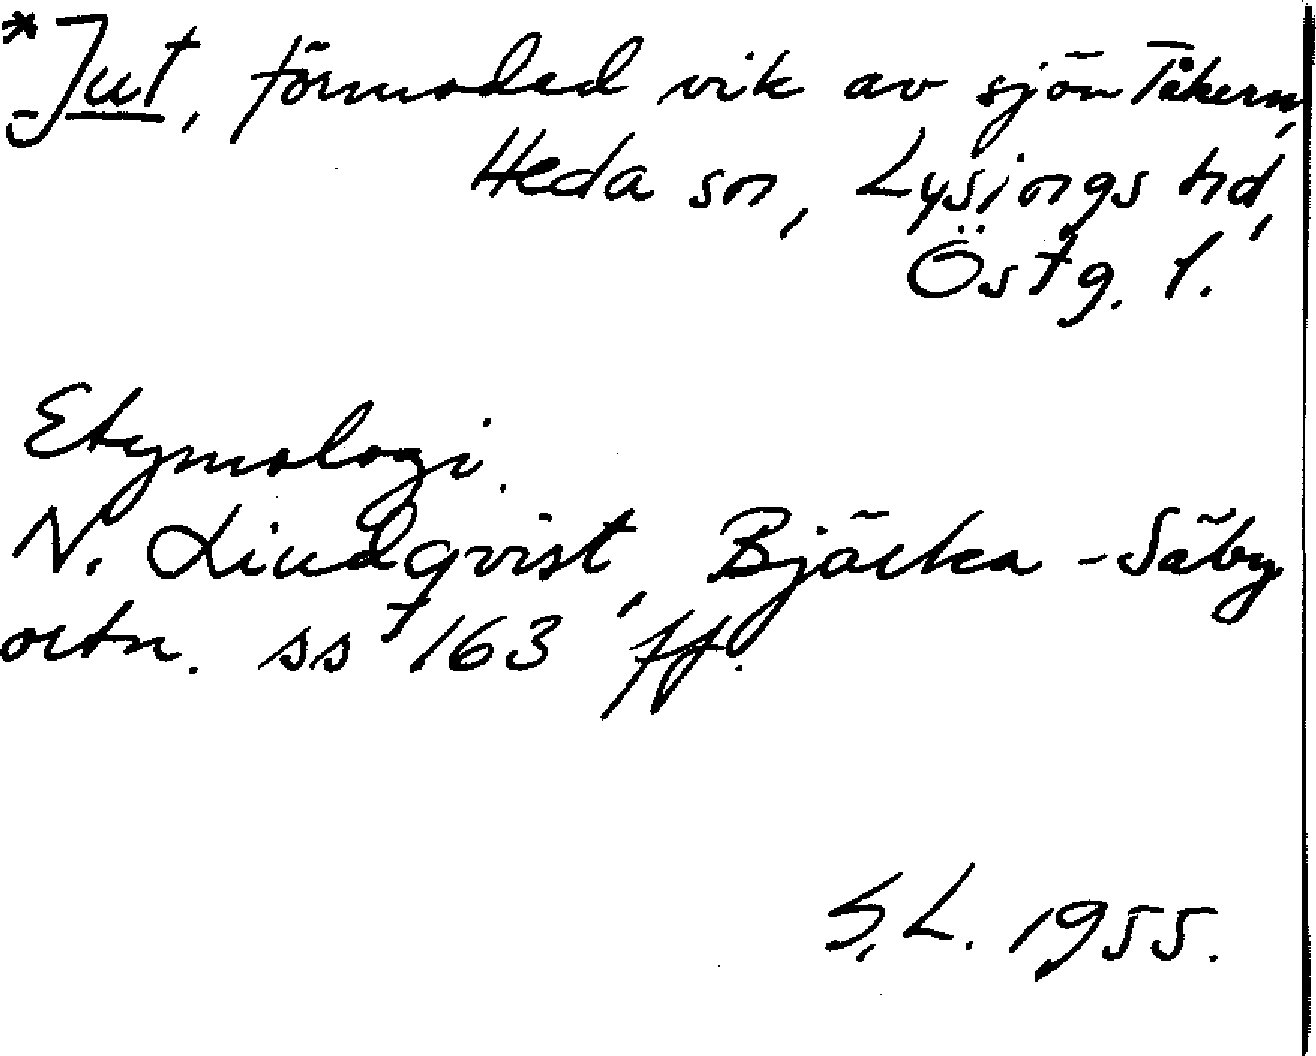 *Jut, förmodad vik av sjön Tåkern,
Heda sn, Lysings hd,
Östg. l.
Etymologi.
N. Lindqvist, Bjärka-Säby
ortn. ss 163 ff.
S.L. 1955.